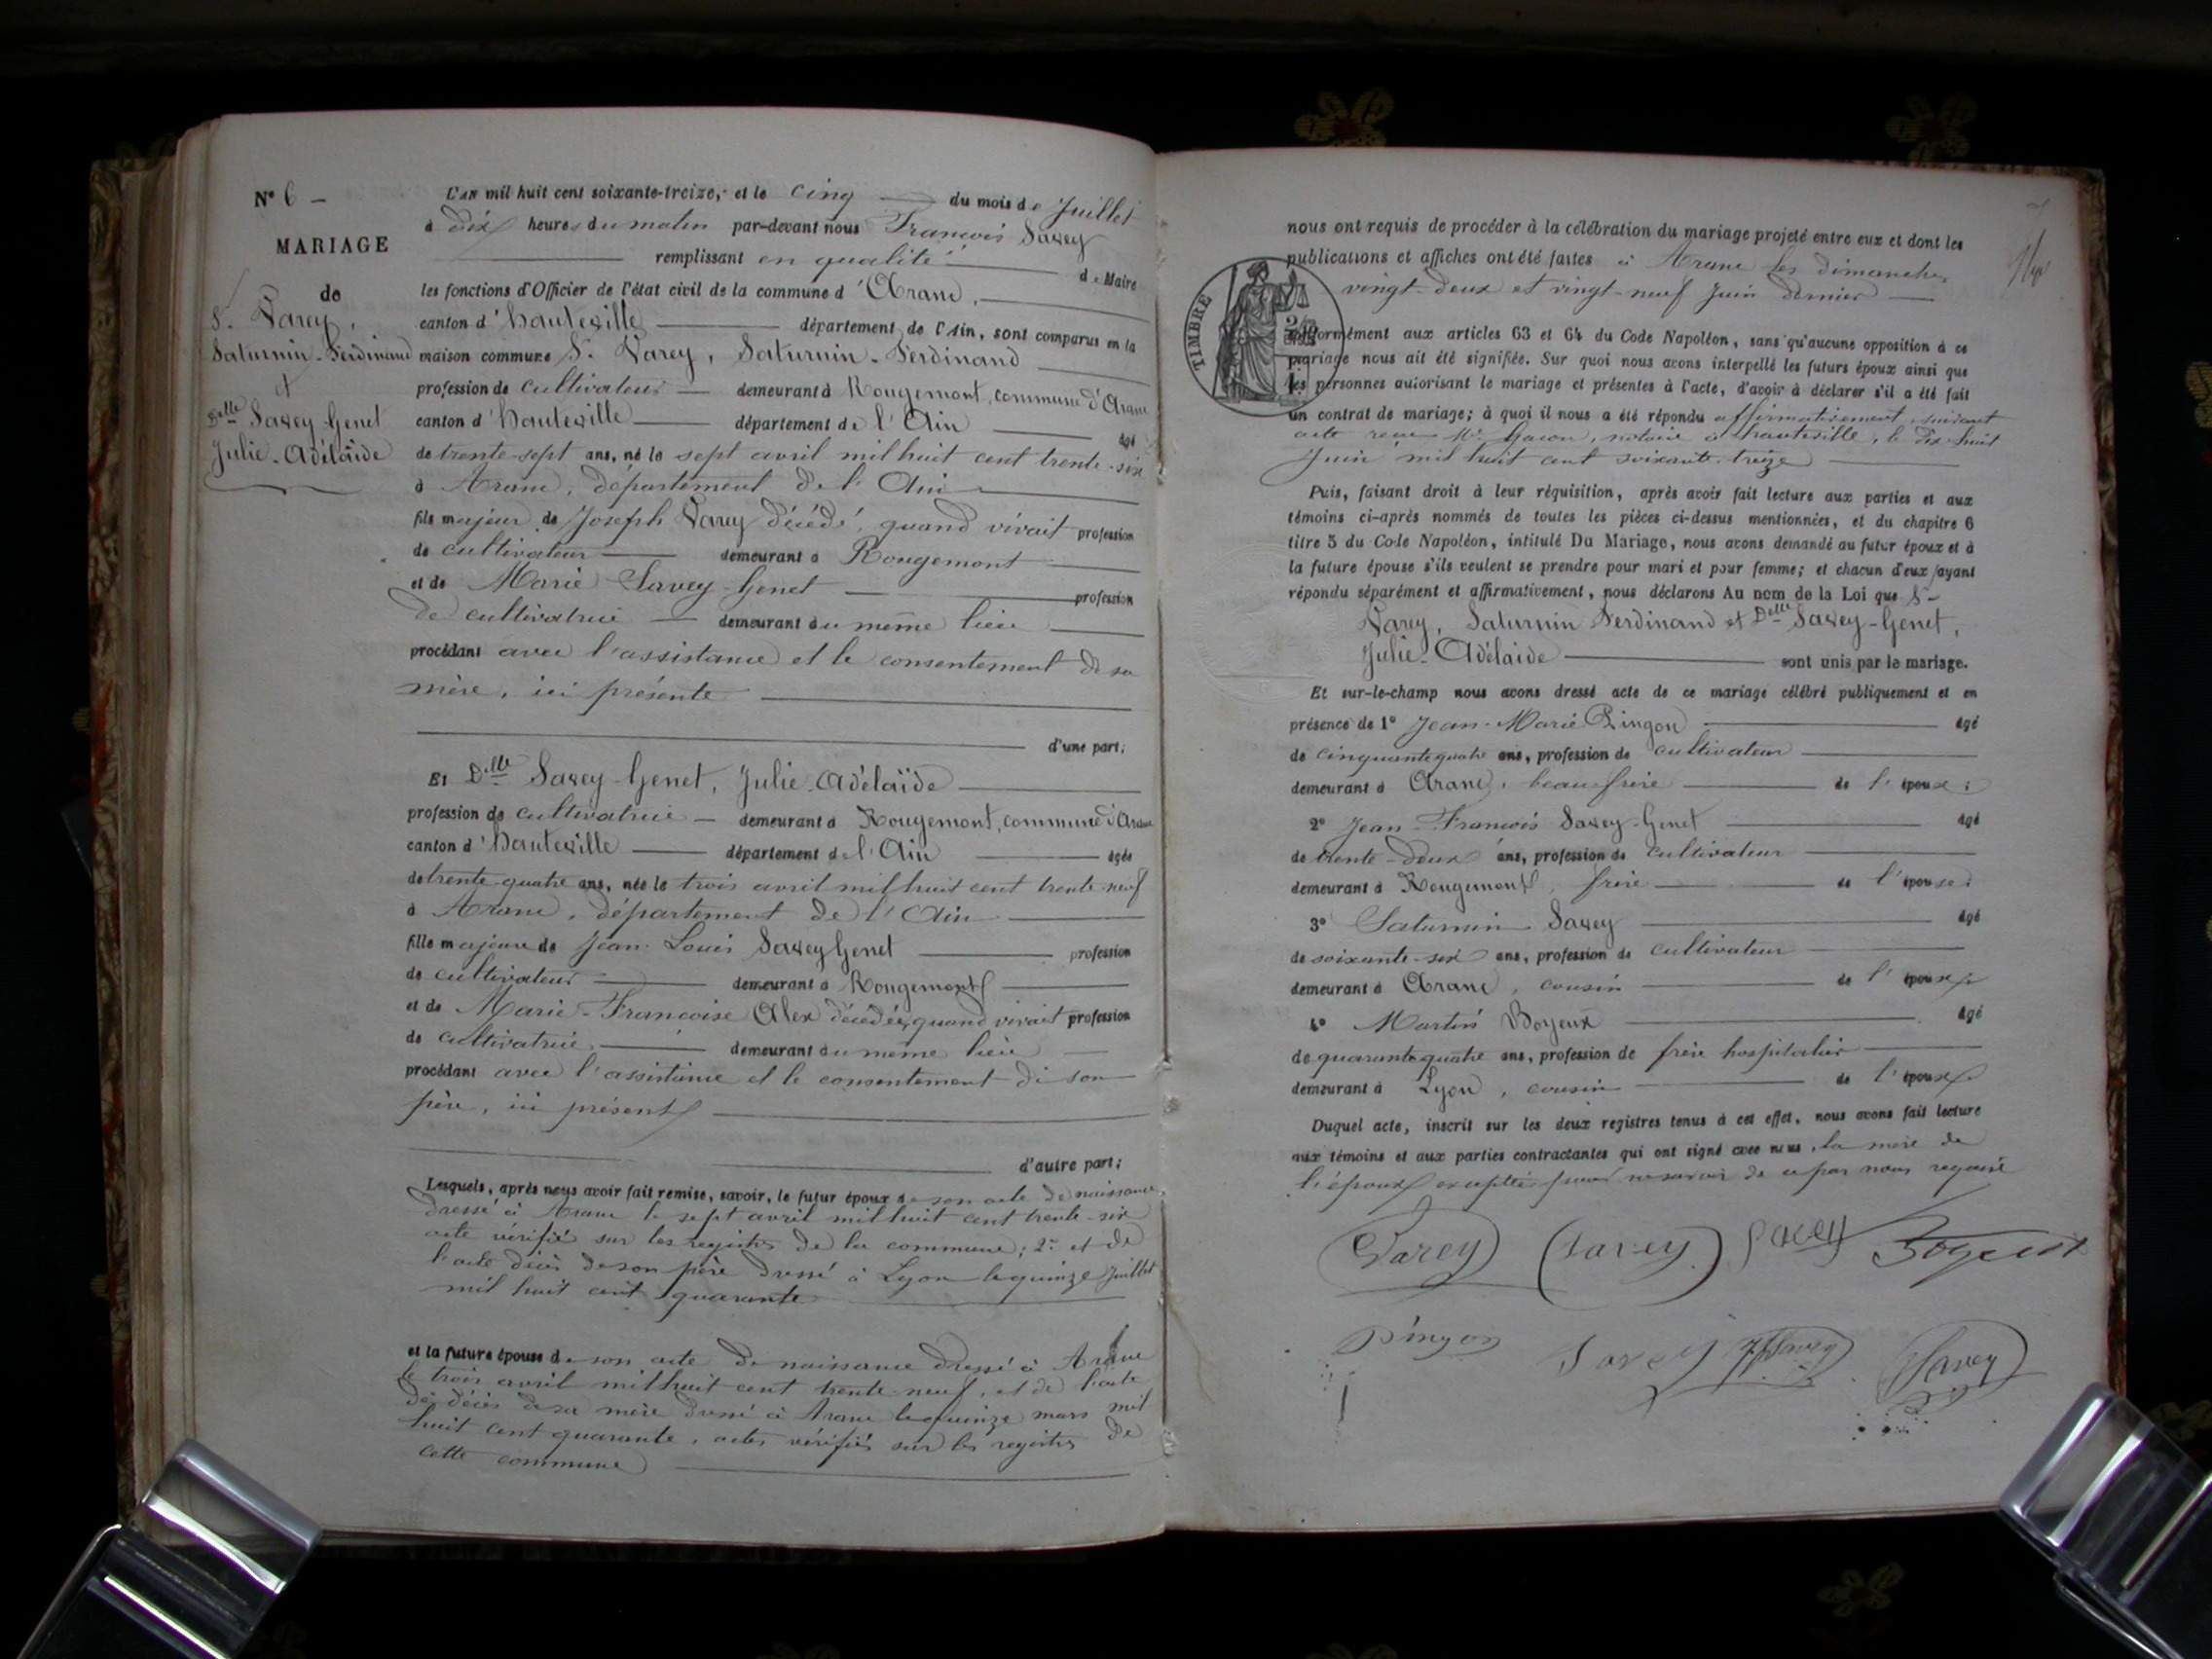 N° 6 -
MARIAGE
de
S. Varey,
Saturnin-Ferdinand
et
Delle Savey-Genet
Julie-Adélaïde
L'AN mil huit cent soixante-treize, et le cinq du mois de Juillet
à dix heures du matin par-devant nous François Savey
remplissant en qualité de Maire
les fonctions d'Officier de l'état civil de la commune d'Aranc,
canton d'hauteville département de l'Ain, sont comparus en la
maison commune S. Varey, Saturnin-Ferdinand
profession de cultivateur demeurant à Rougemont, commune d'Aranc
canton d'hauteville département de l'Ain âgé
de trente-sept ans, né le sept avril mil huit cent trente-six
à Aranc, département de l'Ain
fils majeur de Joseph Varey décédé, quand vivait profession
de cultivateur demeurant à Rougemont
et de Marie Savey-Genet profession
de cultivatrice demeurant au même lieu
procédant avec l'assistance et le consentement de sa
mère, ici présente
d'une part;
Et Delle Savey-Genet, Julie-Adélaïde
profession de cultivatrice demeurant à Rougemont, commune d'Aranc
canton d'hauteville département de l'Ain âgée
de trente-quatre ans, née le trois avril mil huit cent trente-neuf
à Aranc, département de l'Ain
fille majeure de Jean-Louis Savey Genet profession
de cultivateur demeurant à Rougemont
et de Marie-Francoise Alex décédée, quand vivait profession
de cultivatrice demeurant au même lieu
procédant avec l'assistance et le consentement de son
père, ici présent
d'autre part;
Lesquels, après nous avoir fait remise, savoir, le futur époux de son acte de naissance
dressé à Aranc le sept avril mil huit cent trente-six
acte vérifié sur les registres de la commune; 2° et de
l'acte décès de son père dressé à Lyon le quinze Juillet
mil huit cent quarante
et la future épouse de son acte de naissance dressé à Aranc
le trois avril mil huit cent trente-neuf, et de l'acte
de décès de sa mère dressé à Aranc le quinze mars mil
huit cent quarante, actes vérifiés sur les registres de
cette commune
nous ont requis de procéder à la célébration du mariage projeté entre eux et dont les
publications et affiches ont été faites à Aranc les dimanches
vingt-deux et vingt-neuf Juin dernier
TIMBRE
conformément aux articles 63 et 64 du Code Napoléon, sans qu'aucune opposition à ce
mariage nous ait été signifiée. Sur quoi nous avons interpellé les futurs époux ainsi que
les personnes autorisant le mariage et présentes à l'acte, d'avoir à déclarer s'il a été fait
un contrat de mariage; à quoi il nous a été répondu affirmativement, suivant
acte reçu Me Gacon, notaire à hauteville, le dix-huit
Juin mil huit cent soixante-treize
Puis, faisant droit à leur réquisition, après avoir fait lecture aux parties et aux
témoins ci-après nommés de toutes les pièces ci-dessus mentionnées, et du chapitre 6
titre 5 du Code Napoléon, intitulé Du Mariage, nous avons demandé au futur époux et à
la future épouse s'ils veulent se prendre pour mari et pour femme; et chacun d'eux ayant
répondu séparément et affirmativement, nous déclarons Au nom de la Loi que S-
Varey, Saturnin Ferdinand et Delle Savey-Genet,
Julie-Adélaïde sont unis par le mariage.
Et sur-le-champ nous avons dressé acte de ce mariage célébré publiquement et en
présence de 1° Jean-Marie Pingon âgé
de cinquante quatre ans, profession de cultivateur
demeurant à Aranc, beau-frère de l'épouse;
2° Jean-François Savey-Genet âgé
de trente-deux ans, profession de cultivateur
demeurant à Rougemont, frère de l'épouse;
3° Saturnin Savey âgé
de soixante-six ans, profession de cultivateur
demeurant à Aranc, cousin de l'époux
4° Martin Boyeux âgé
de quarante quatre ans, profession de frère hospitalier
demeurant à Lyon, cousin de l'époux
Duquel acte, inscrit sur les deux registres tenus à cet effet, nous avons fait lecture
aux témoins et aux parties contractantes qui ont signé avec nous, la mère de
l'époux exceptée pour ne savoir de ce par nous requise
Varey Savey Savey Boyeux
Pingon Savey Savey Savey